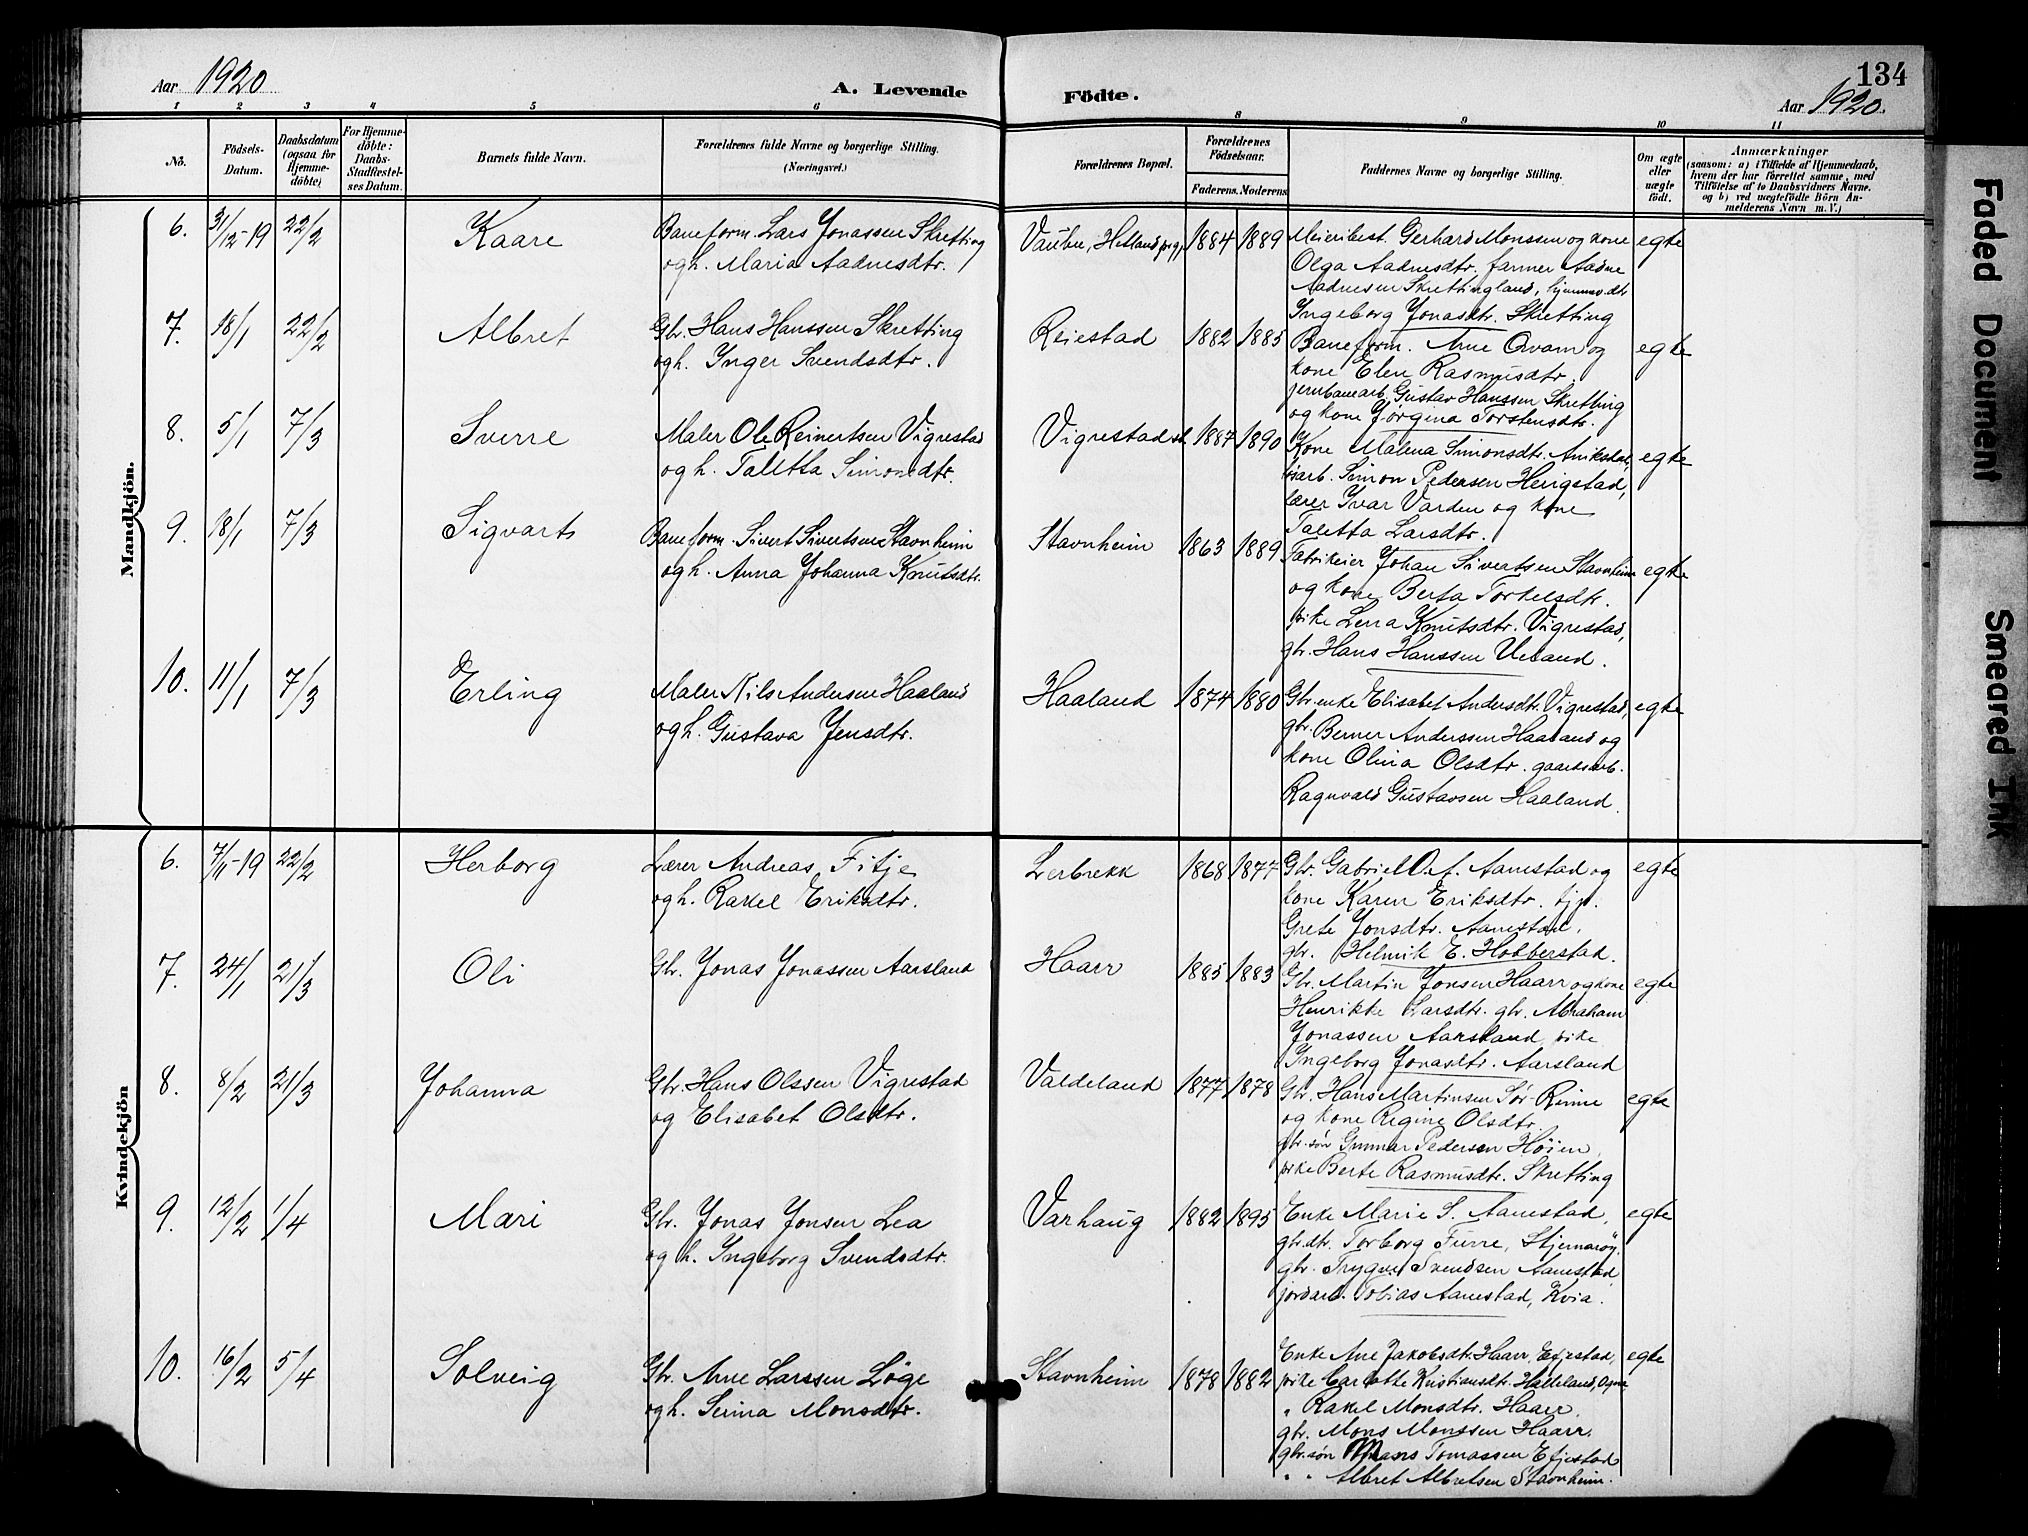 134
Aar 1920
A. Levende
Födte.
Aar 1920.
1 2 3 4 5 6 8 9 10 11
No.
Födsels-Datum.
Daabsdatum (ogsaa for Hjemme-döbte)
For Hjemme-döbte: Daabs-Stadfæstel-ses Datum.
Barnets fulde Navn.
Forældrenes fulde Navne og borgerlige Stilling.
(Næringsvei.)
Forældrenes Bopæl.
Forældrenes Födselsaar.
Faderens. Moderens
Faddernes Navne og borgerlige Stilling.
Om ægte eller uægte födt.
Anmærkninger
(saasom: a) i Tilfælde af Hjemmedaab,
hvem der har forrettet samme, med
Tilföielse af to Daabsvidners Navne.
og b) ved uægtefödte Börn An-
melderens Navn m. V.)
Mandkjön.
6. 31/12-19 22/2 Kaare Baneform. Lars Jonassen Skretting 1884 1889 Meieribest. Gerhard Monssen og kone egte
og h. Maria Aadnesdtr. Olga Aadnesdtr. farmer Aadne
Aadnesen Skrettingland, hjemmev. dtr
Ingeborg Jonasdtr. Skretting
7. 18/1 22/2 Albret Gbr. Hans Hanssen Skretting Reiestad 1882 1885 Baneform. Arne Qvam og egte
og h. Inger Svendsdtr. kone Elen Rasmusdtr.
jernbanearb. Gustav Hanssen Skretting
og kone Jorgina Torstensdtr.
8. 5/1 7/3 Sverre Maler Ole Reinertsen Vigrestad Vigrestad st. 1887 1890 Kone Malena Simonsdtr. Aniksdal, egte
og h. Taletta Simonsdtr. Simon Pedersen Heigstad,
lærer Ivar Varden og kone
Taletta Larsdtr.
9. 18/1 7/3 Sigvart Baneform. Sivert Sivertsen Stavnheim Stavnheim 1863 1889 Fabrikeier Johan Sivertsen Stavnheim egte
og h. Anna Johanna Knutsdtr. og kone Berta Torkelsdtr.
pike Lena Knutsdtr. Vigrestad,
gbr. Hans Hanssen Ueland.
10. 11/1 7/3 Erling Maler Nils Andersen Haaland Haaland 1874 1880 Gbr. enke Elisabet Andersdtr. Vigrestad, egte
og h. Gustava Jensdtr. gbr. Berner Anderssen Haaland og
kone Olina Olsdtr. gaardsarb.
Ragnvald Gustavsen Haaland.
Kvindekjön
6. 7/11-19 22/2 Herborg Lærer Andreas Fitje Lerbrekk 1868 1877 Gbr. Gabriel O. A. Aanestad og egte
og h. Rakel Eriksdtr. kone Karen Eriksdtr. tjp.
Grete Jonsdtr. Aanestad,
gbr. Helmik E. Hobberstad.
7. 24/1 21/3 Oli Gbr. Jonas Jonassen Aarsland Haarr 1885 1883 Gbr. Martin Jonsen Haarr og kone egte
Henrikke Larsdtr. gbr. Abraham
Jonassen Aarsland, pike
Ingeborg Jonasdtr. Aarsland
8. 8/2 21/3 Johanna Gbr. Hans Olssen Vigrestad Valdeland 1877 1878 Gbr. Hans Martinsen Sör-Reime egte
og Elisabet Olsdtr. og kone Regine Olsdtr.
gbr. sön Gunnar Pedersen Höien,
pike Berte Rasmusdtr. Skretting
9. 12/2 1/4 Mari Gbr. Jonas Jonsen Lea Varhaug 1882 1895 Enke Marie S. Aanestad, egte
og h. Ingeborg Svendsdtr. gbr. dtr. Torborg Furre, Stjernaröy,
gbr. Trygve Svendsen Aanestad,
jordarb. Tobias Aanestad, Kvia.
10. 16/2 5/4 Solveig Gbr. Arne Larssen Löge Stavnheim 1878 1882 Enke Ane Jakobsdtr. Haarr, Efjestad, egte
og h. Serina Monsdtr. pike Carlotte Kristiansdtr. Halleland, Ogna
" Rakel Monsdtr. Haarr,
gbr. Mons Monssen Haarr,
gbr. sön Mans Tomassen Efjestad
" " Albret Albretsen Stavnheim.
Faded Document
Smeared Ink